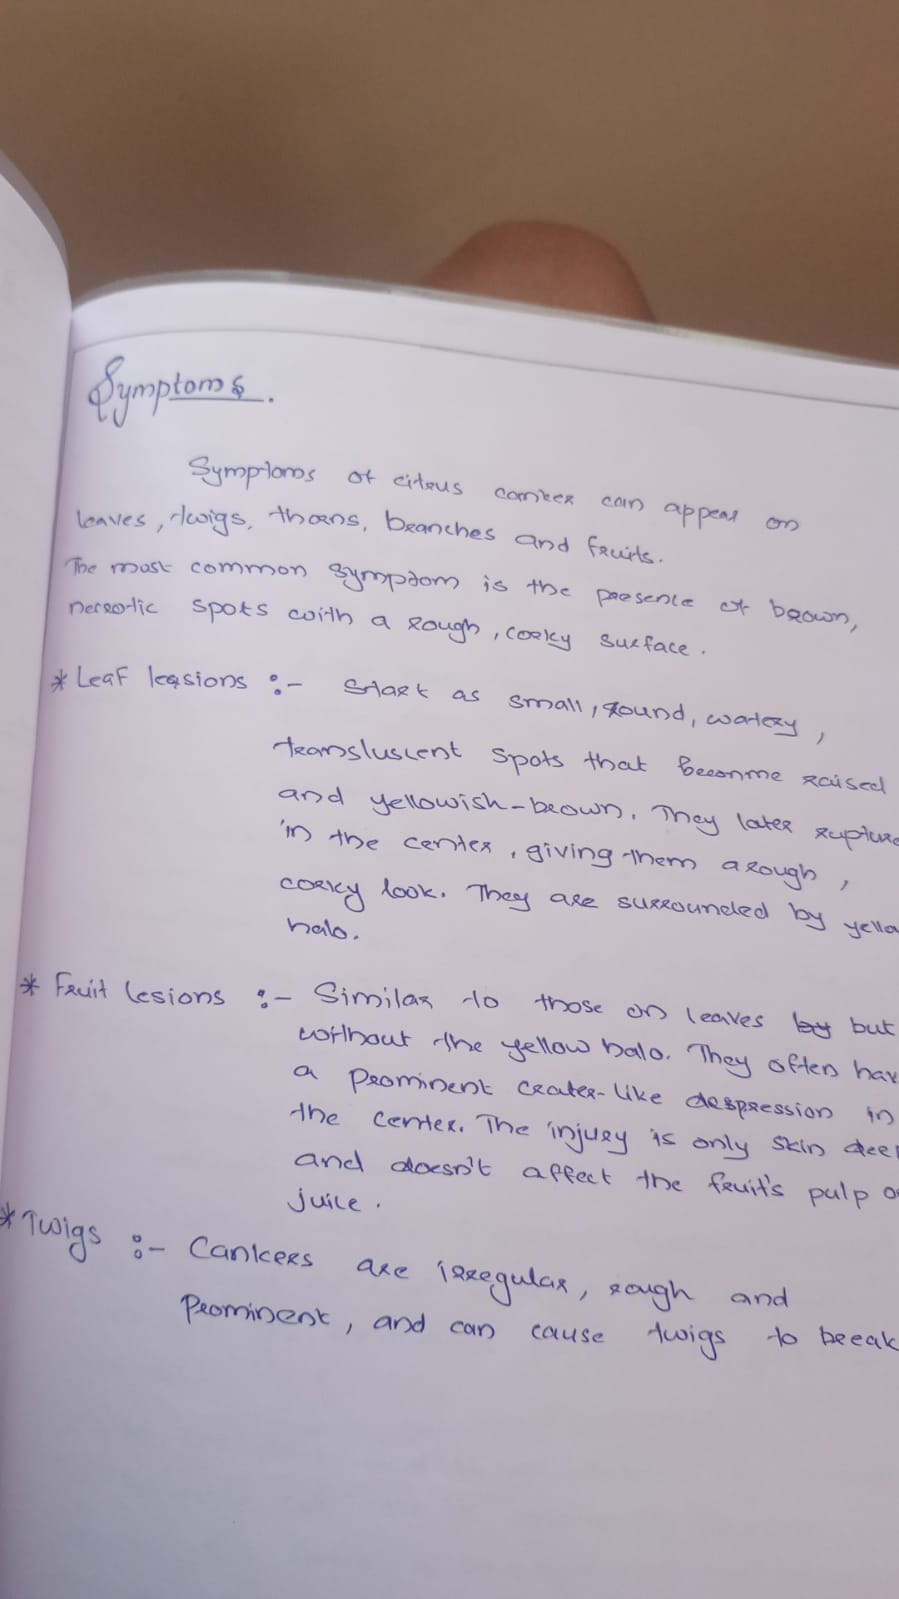 Symptoms.
Symptoms of citrus canker can appear on
leaves, twigs, thorns, branches and fruits.
The most common symptom is the presence of brown,
necrotic spots with a rough, corky surface.
* Leaf lesions :- Start as small, round, watery,
transluscent spots that beconme raised
and yellowish-brown. They later rupture
in the center, giving them a rough,
corky look. They are surrounded by yello
halo.
* Fruit lesions :- Similar to those on leaves by but
without the yellow halo. They often hav
a prominent crater-like despression in
the center. The injury is only skin deep
and doesn't affect the fruit's pulp o
juice.
* Twigs :- Cankers are irregular, rough and
Prominent, and can cause twigs to break